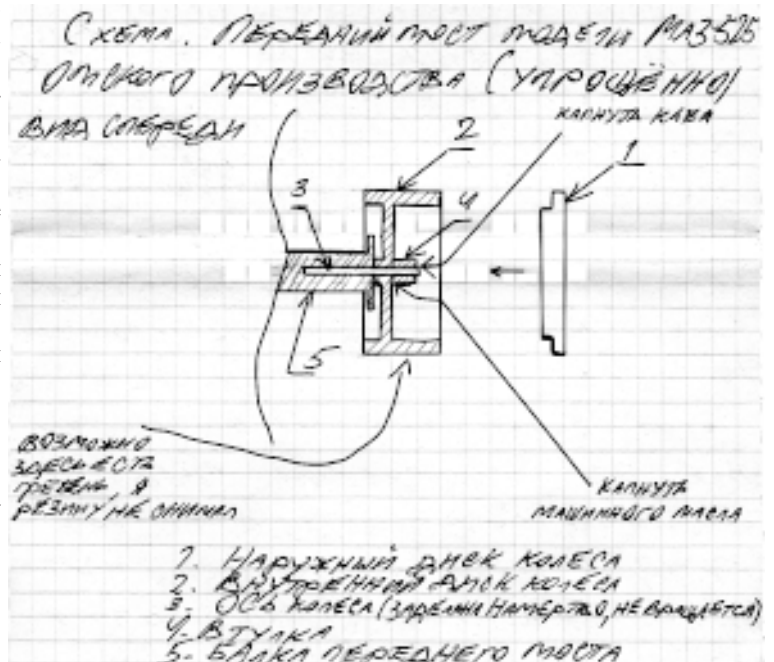 Схема. Передний мост модели МАЗ 525
Омского производства (упрощённо)
вид спереди
капнуть клея
2
1
3
4
5
возможно
здесь есть
гребень, я
резину не снимал
капнуть
машинного масла
1. Наружный диск колеса
2. Внутренний диск колеса
3. Ось колеса (заделан намертво, не вращается)
4. Втулка
5. Балка переднего моста